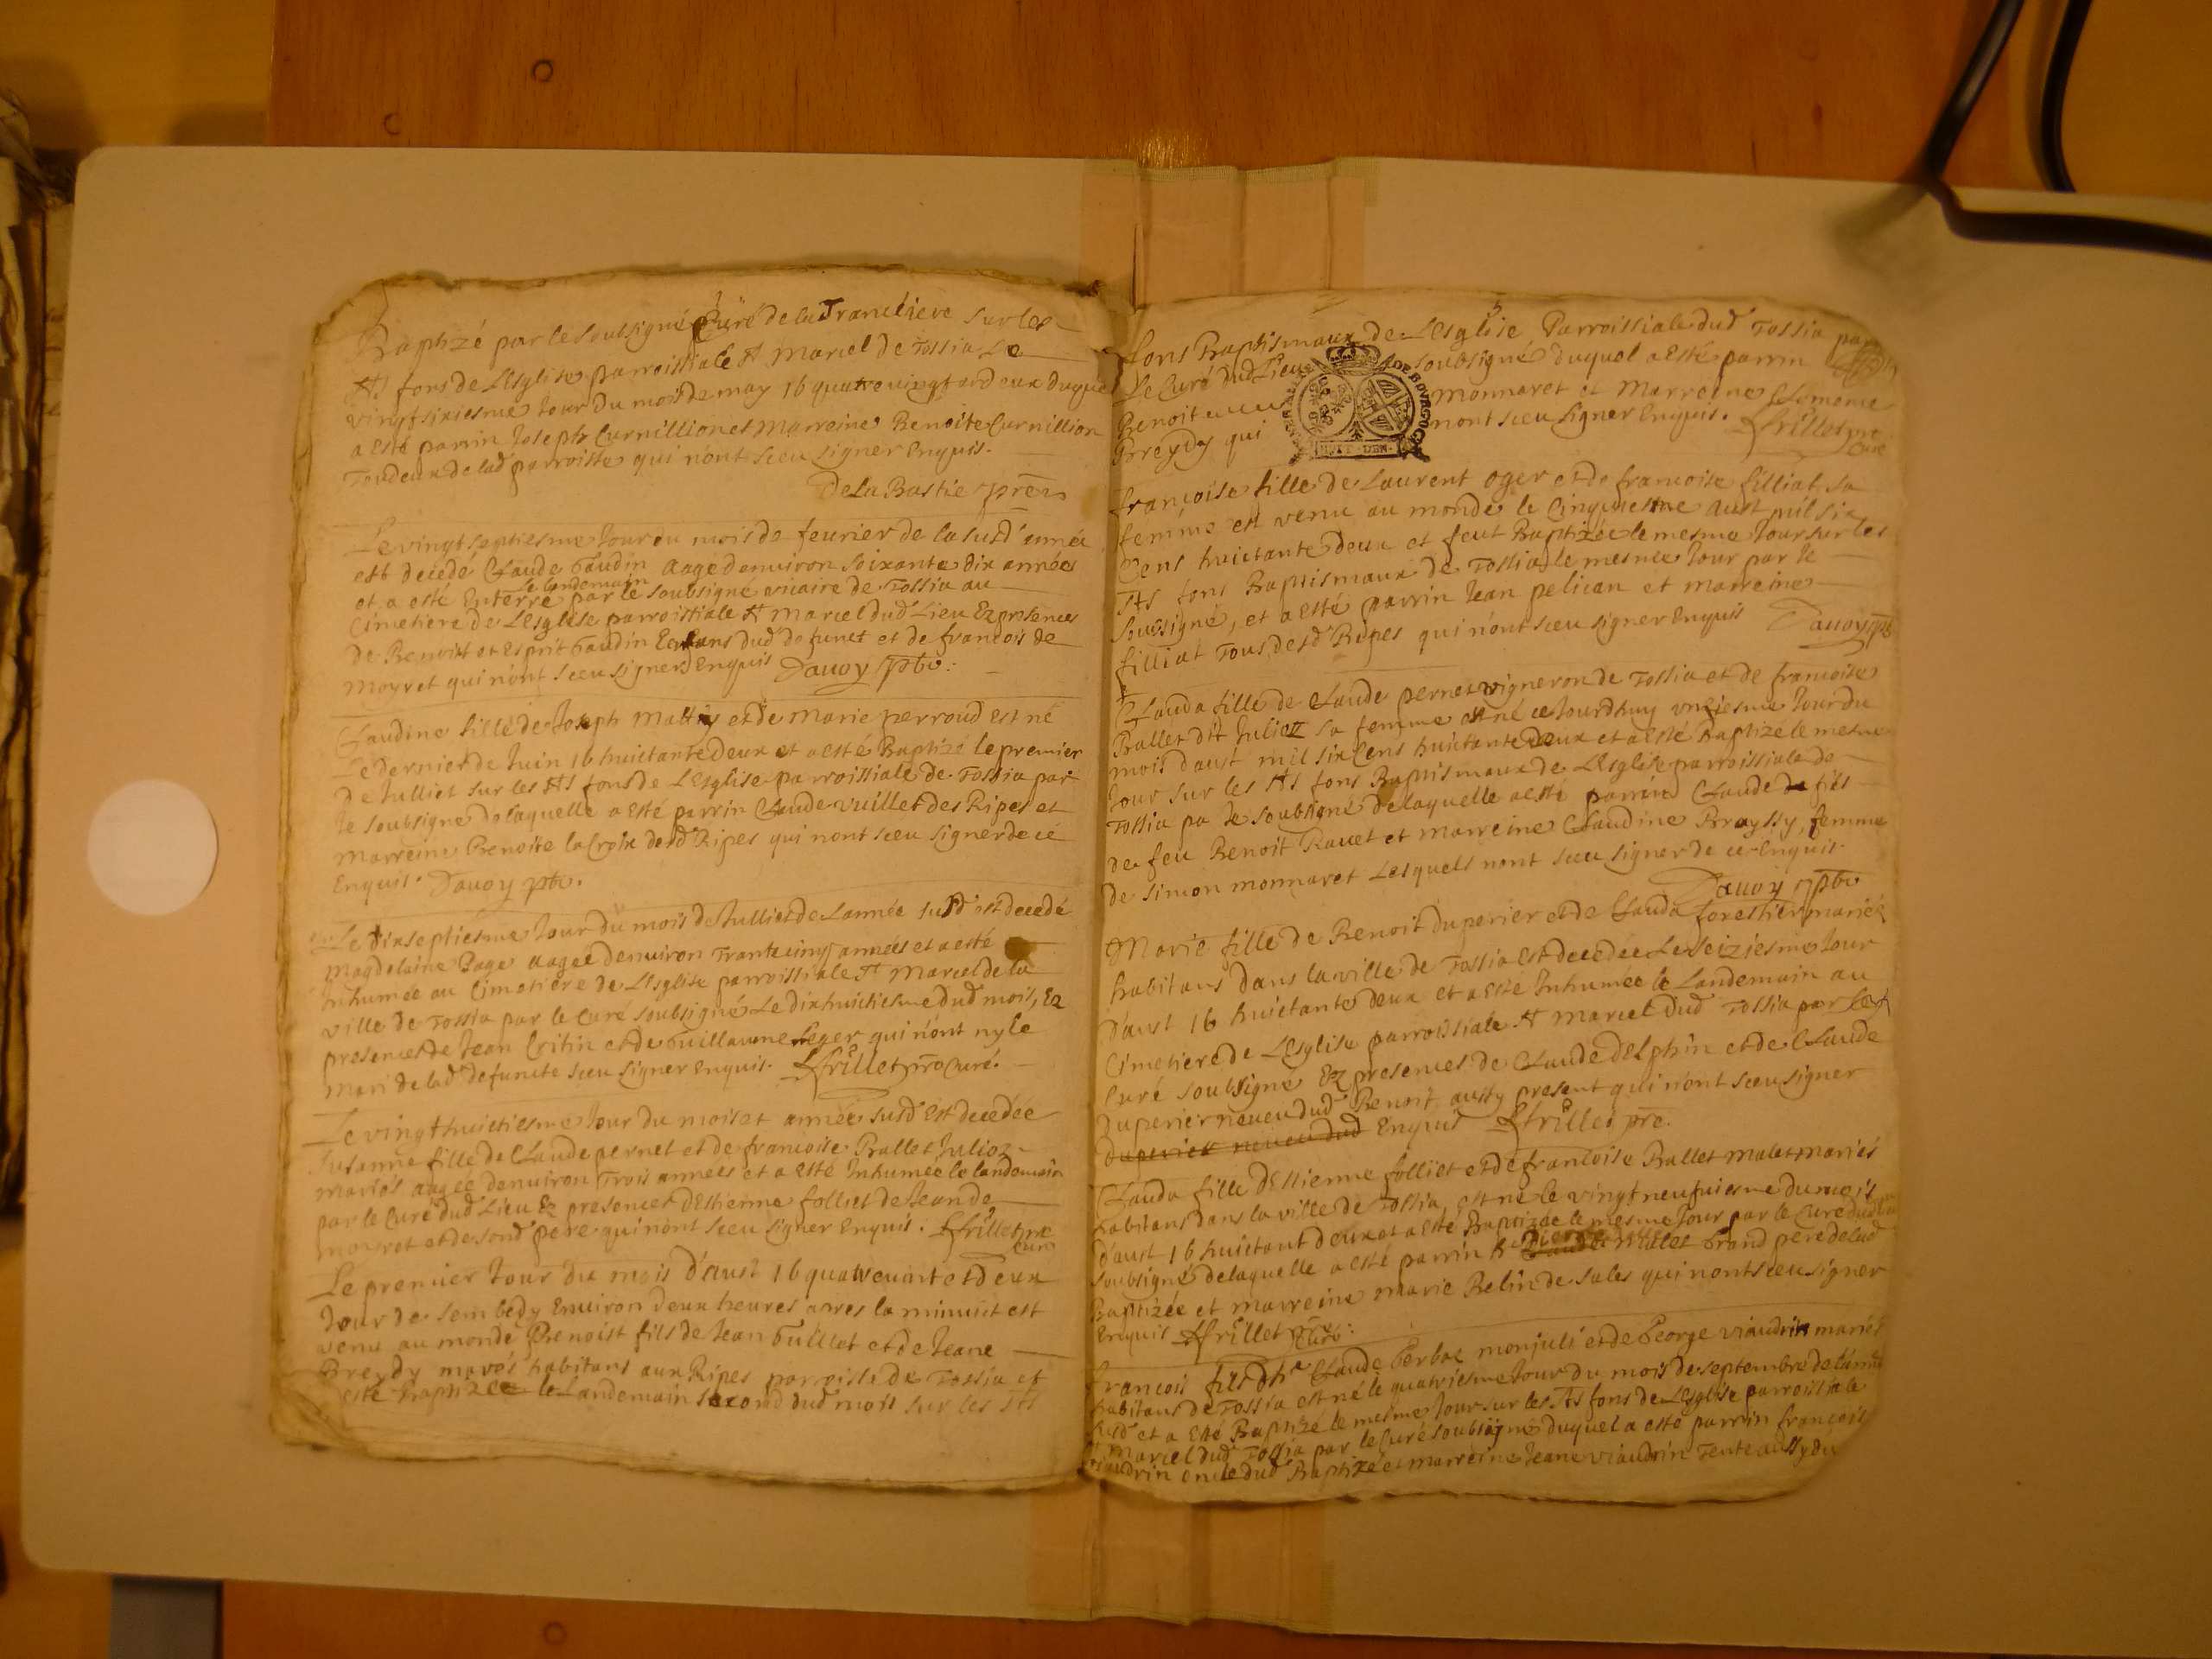 Baptizé par le soubsigné Curé de la Trancliere sur les
Sts fons de Lesglise parroissiale St Marcel de Tossia Le
vingtsixiesme Jour du mois de may 16 quatrevingt and deux duquel
a esté parrin Joseph Curnillion et Marreine Benoite Curnillion
Tous deux de lad parroisse qui n'ont sceu signer Enquis.
De La Bastie pre
Le vingt septiesme Jour du mois de feurier de la susd' année
est decede Claude Gaudin aagé denuiron soixante dix années
et a esté Enterré le landemain par le soubsigné vicaire de Tossia au
Cimetiere de Lesglise parroissiale St Marcel dud Lieu Ez presences
de Benoist et Esprit Gaudin Enfans dud defunct et de francois de
Moyret qui n'ont sceu signer Enquis Dauoy pbr.
Claudine fille de Joseph Mattey et de Marie perroud est né
Le dernier de Juin 16 huictante Deux et a esté Baptizé le premier
de Julliet sur les Sts fons de L'Esglise parroissiale de Tossia par
le soubsigné de laquelle a esté parrin Claude vuillet des Ripes et
Marreine Benoite la Croix desd Ripes qui n'ont sceu signer de ce
Enquis. Dauoy pbr.
Le dixseptiesme Jour du mois de Julliet de Lannée susd est decedé
Magdelaine Page aagée denuiron Trante cinq années et a esté
Inhumée au Cimetiere de L'Esglise parroissiale St Marcel de la
ville de Tossia par le Curé soubsigné Le dixhuictiesme dud mois, Ez
presences de Jean Critin et de Guillaume Leger qui n'ont ny le
mari de lad defuncte sceu signer Enquis. Frillet pre Curé.
Le vingt huictiesme Jour du mois et année susd Est decedée
Susanne fille de Claude pernet et de francoise Prallet Julioz
mariés aagée denuiron Trois annees et a esté Inhumée le landemain
par le Curé dud Lieu Ez presences d'Estienne folliet de Jean de
moyret et de sond pere qui n'ont sceu signer Enquis. Frillet pre
Curé
Le premier Jour du mois d'aust 16 quatreuint et Deux
Jour de sembedy Enuiron deux heures apres la minuit est
venu au monde Benoist fils de Jean Guillet et de Jeane
Breydy mariés habitans aux Ripes parroisse de Tossia et
esté Baptizée le Landemain second dud mois sur les Sts
5
fons Baptismaux de L'Esglise Parroissiale dud Tossia par
Le Curé dud Lieu soubsigné duquel a Esté parrin
Benoit Monnaret et Marreine Clemence
Greydy qui n'ont sceu signer Enquis. Frillet pre
Curé
GENERALITE DE BOVRGOGNE
HUIT DEN
francoise fille de Laurent Oger et de francoise filliat sa
femme est venu au monde le Cinquiesme Aust mil six
Cens huictante deux et feut Baptizée le mesme Jour sur les
Sts fons Baptismaux de Tossia le mesme Jour par le
soussigné, et a esté parrin Jean pelican et marreine
filliat Tous desd Ripes qui n'ont sceu signer Enquis Dauoy pbr
Clauda fille de Claude pernet vigneron de Tossia et de francoise
Prallet dit Julioz sa femme est né ce Jourdhuy vnziesme Jour du
mois d'aust mil six Cens huictante deux et a esté Baptizé le mesme
Jour sur les Sts fons Baptismaux de L'Esglise parroissiale de
Tossia pa le soubsigné de laquelle a esté parrin Claude fils
de feu Benoit Rauet et marreine Claudine Brayssy, femme
de Simon monnaret Lesquels n'ont sceu signer de ce Enquis.
Dauoy pbr
Marie fille de Benoit Duperier et de Clauda forestier mariés
habitans dans la ville de Tossia est decedée Le seiziesme Jour
d'aust 16 huictante deux et a esté Inhumée le Landemain au
Cimetiere de L'Esglise parroissiale St Marcel dud Tossia par Le
Curé soubsigné Ez presences de Claude Delphin et de Claude
Duperier neueu dud Benoit aussy present qui n'ont sceu signer
Duperier neueu dud Enquis Frillet pre.
Clauda fille D'Estienne folliet et de francoise Prallet Malet mariés
habitans dans la ville de Tossia, est né le vingt neufuiesme du mois
d'aust 16 huictant deux et a esté Baptizée le mesme Jour par le Curé dud lieu
soubsigné de laquelle a esté parrin Pierre Mallet Grand pere de lad
Baptizée et marreine Marie Belin de Sales qui n'ont sceu signer
Enquis Frillet pre Curé.
francois fils d'he Claude Gerbae monjuli et de George viaudrin mariés
habitans de Tossia est né le quatriesme Jour du mois de septembre de l'année
susd et a esté Baptizé le mesme Jour sur les Sts fons de L'Esglise parroissiale
St Marcel dud Tossia par le Curé soubsigné duquel a esté parrin francois
viaudrin oncle dud Baptizé et marreine Jeane viaudrin Tente aussy du